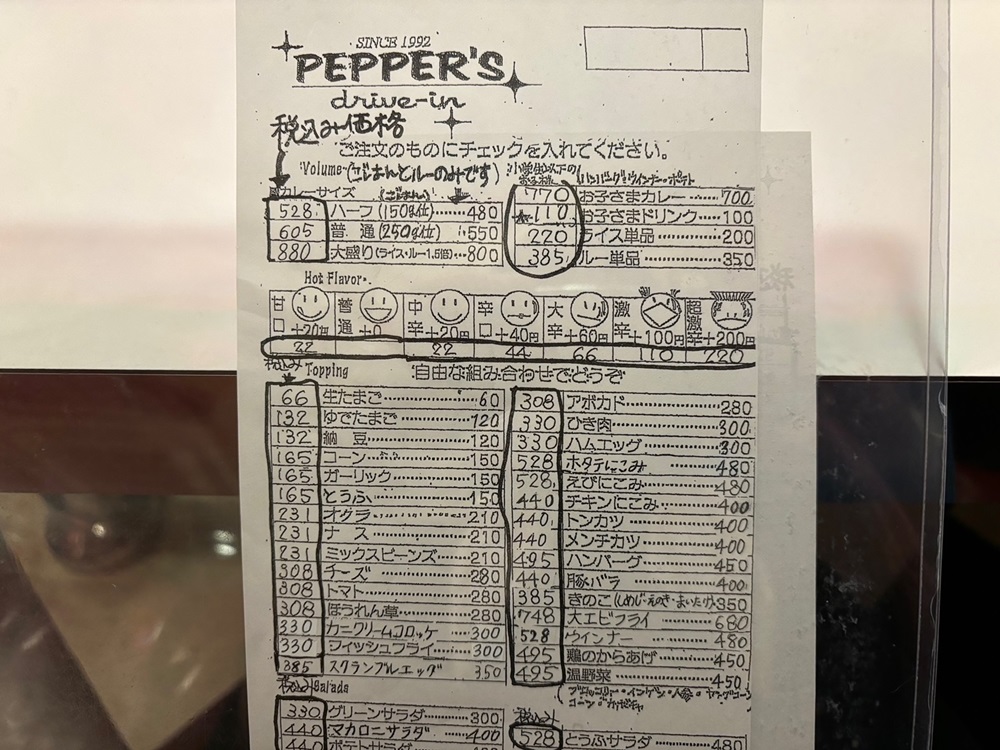 SINCE 1992
PEPPER'S
drive-in
税込み価格
ご注文のものにチェックを入れてください。
Volume (ごはんとルーのみです)
カレーサイズ (ごはん)
528 ハーフ(150g位)……480
605 普通(250g位)……550
880 大盛り(ライス・ルー1.5倍)…800
小学生以下の
ハンバーグ・ウインナー・ポテト
770 お子さまカレー……700
110 お子さまドリンク……100
220 ライス単品……200
385 ルー単品……350
Hot Flavor
甘口+20円 普通+0 中辛+20円 辛口+40円 大辛+60円 激辛+100円 超激辛+200円
22 22 44 66 110 220
税込み Topping 自由な組み合わせでどうぞ
66 生たまご……60
132 ゆでたまご……120
132 納豆……120
165 コーン……150
165 ガーリック……150
165 とうふ……150
231 オクラ……210
231 ナス……210
231 ミックスビーンズ……210
308 チーズ……280
308 トマト……280
308 ほうれん草……280
330 カニクリームコロッケ……300
330 フィッシュフライ……300
385 スクランブルエッグ 350
308 アボカド……280
330 ひき肉……300
330 ハムエッグ……300
528 ホタテにこみ……480
528 えびにこみ……480
440 チキンにこみ……400
440 トンカツ……400
440 メンチカツ……400
495 ハンバーグ……450
440 豚バラ……400
385 きのこ(しめじ・えのき・まいたけ)350
748 大エビフライ……680
528 ウインナー……480
495 鶏のからあげ……450
495 温野菜……450
ブロッコリー・インゲン・人参・ヤングコーン
コーン・カボチャ
税込み Salada
330 グリーンサラダ……300
440 マカロニサラダ……400
440 ポテトサラダ
税込み
528 とうふサラダ……480